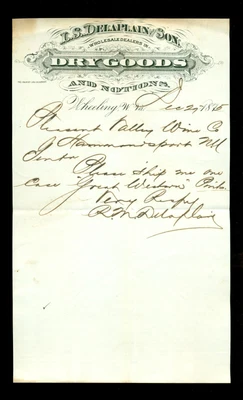 L.S. DELAPLAIN, SON,
WHOLESALE DEALERS IN
DRY GOODS
AND NOTIONS.
Wheeling, W. Va. Dec 29 1875
Pleasant Valley Wine Co
Hammondsport NY
Gents
Please ship me one
Case "Great Western" Pints
Very Respy
R. M. Delaplain